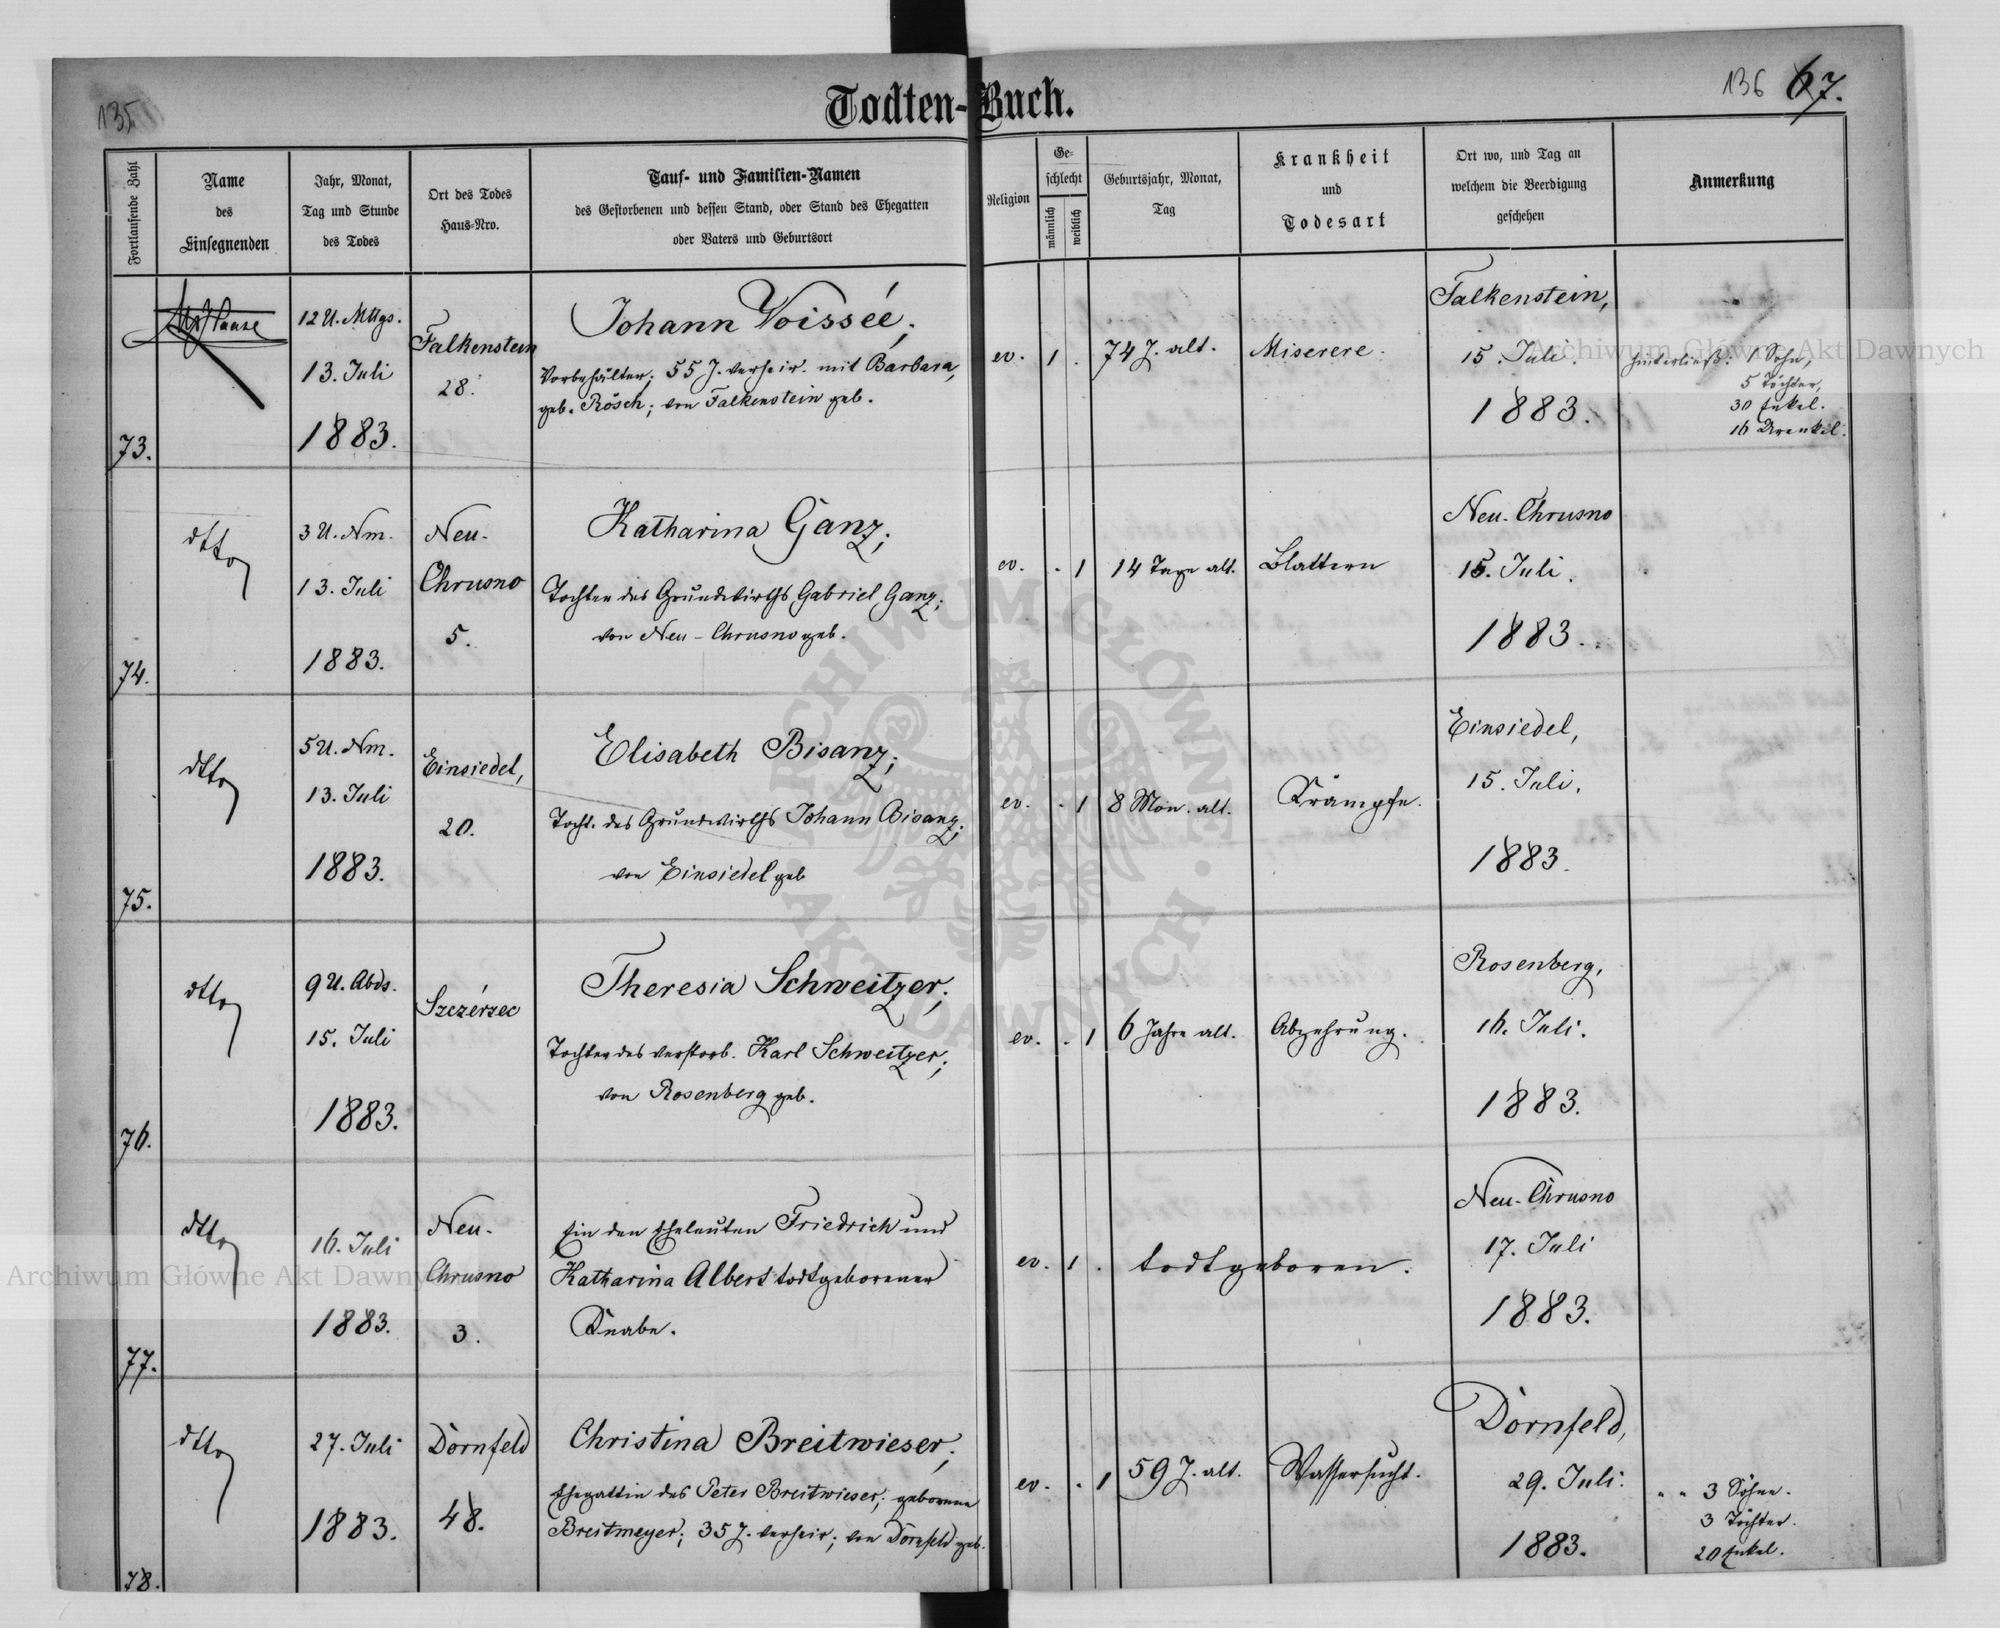 135
136 67.
Todten-Buch.
Fortlaufende Zahl
Name
des
Einsegnenden
Jahr, Monat,
Tag und Stunde
des Todes
Ort des Todes
Haus-Nro.
Tauf- und Familien-Namen
des Gestorbenen und dessen Stand, oder Stand des Ehegatten
oder Vaters und Geburtsort
Religion
Ge-
schlecht
männlich
weiblich
Geburtsjahr, Monat,
Tag
Krankheit
und
Todesart
Ort wo, und Tag an
welchem die Beerdigung
geschehen
Anmerkung
73.
12 U. Mttgs.
13. Juli
1883.
Falkenstein
28.
Johann Voisseé;
Vorbehälter; 55 J. verheir. mit Barbara,
geb. Rösch; von Falkenstein geb.
ev.
1 .
74 J. alt.
Miserere.
Falkenstein,
15. Juli.
1883.
hinterließ: 1 Sohn,
5 Töchter,
30 Enkel.
16 Urenkel.
74.
dtto
3 U. Nm.
13. Juli
1883.
Neu-
Chrusno
5.
Katharina Ganz;
Tochter des Grundwirths Gabriel Ganz;
von Neu-Chrusno geb.
ev.
. 1
14 Tage alt.
Blattern
Neu-Chrusno
15. Juli.
1883.
75.
dtto
5 U. Nm.
13. Juli
1883.
Einsiedel,
20.
Elisabeth Bisanz;
Tocht. des Grundwirths Johann Bisanz;
von Einsiedel geb
ev.
. 1
8 Mon. alt.
Krämpfe.
Einsiedel,
15. Juli.
1883.
76.
dtto
9 U. Abds.
15. Juli
1883.
Szczérzec
Theresia Schweitzer;
Tochter des verstorb. Karl Schweitzer;
von Rosenberg geb.
ev.
. 1
6 Jahre alt.
Abzehrung.
Rosenberg,
16. Juli.
1883.
77.
dtto
16. Juli
1883.
Neu-
Chrusno
3.
Ein den Eheleuten Friedrich und
Katharina Albert todtgeborener
Knabe.
ev.
1 .
todtgeboren.
Neu-Chrusno
17. Juli
1883.
78.
dtto
27. Juli
1883.
Dornfeld
48.
Christina Breitwieser;
Ehegattin des Peter Breitwieser; geborene
Breitmeyer; 35 J. verheir; von Dornfeld geb.
ev.
. 1
59 J. alt.
Wassersucht.
Dornfeld,
29. Juli.
1883.
" " 3 Söhne.
3 Töchter.
20 Enkel.
Archiwum Główne Akt Dawnych
Archiwum Główne Akt Dawnych
ARCHIWUM GŁÓWNE · AKT DAWNYCH ·